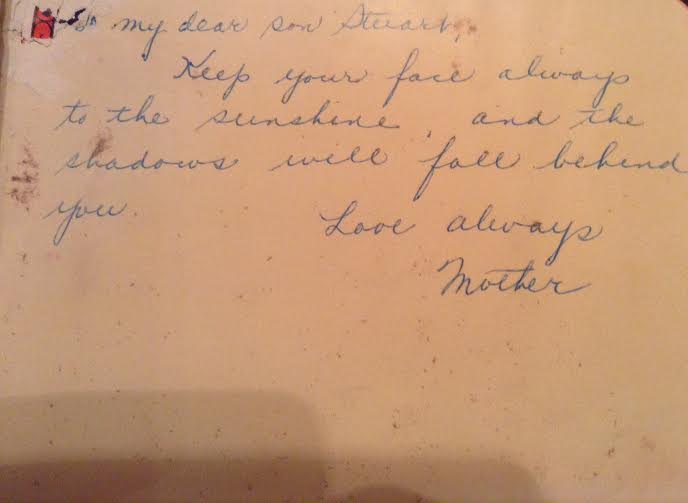 To my dear son Stuart,
Keep your face always
to the sunshine, and the
shadows will fall behind
you.
Love always
Mother